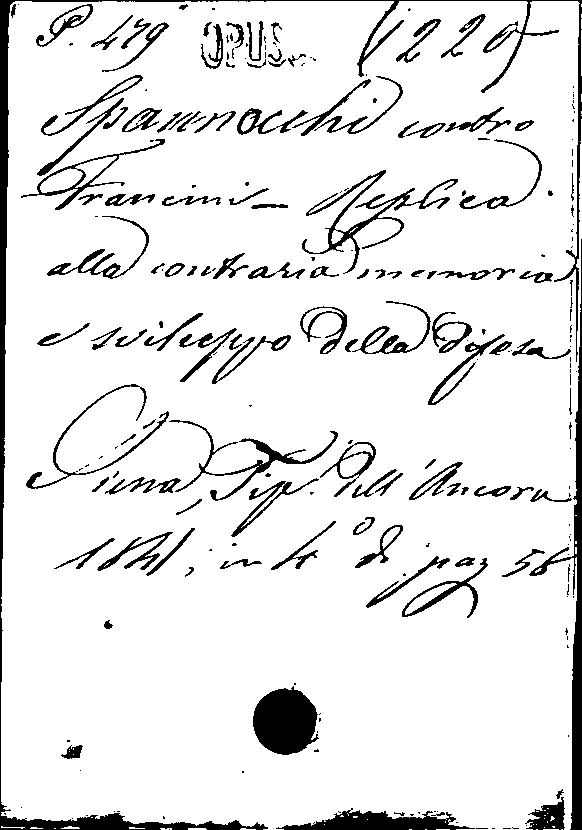 P. 479 OPUS. (1220)
Spannocchi contro
Francini – Replica
alla contraria memoria
e sviluppo della difesa
Siena, Tip. dell'Ancora
1841, in 4° di pag 56